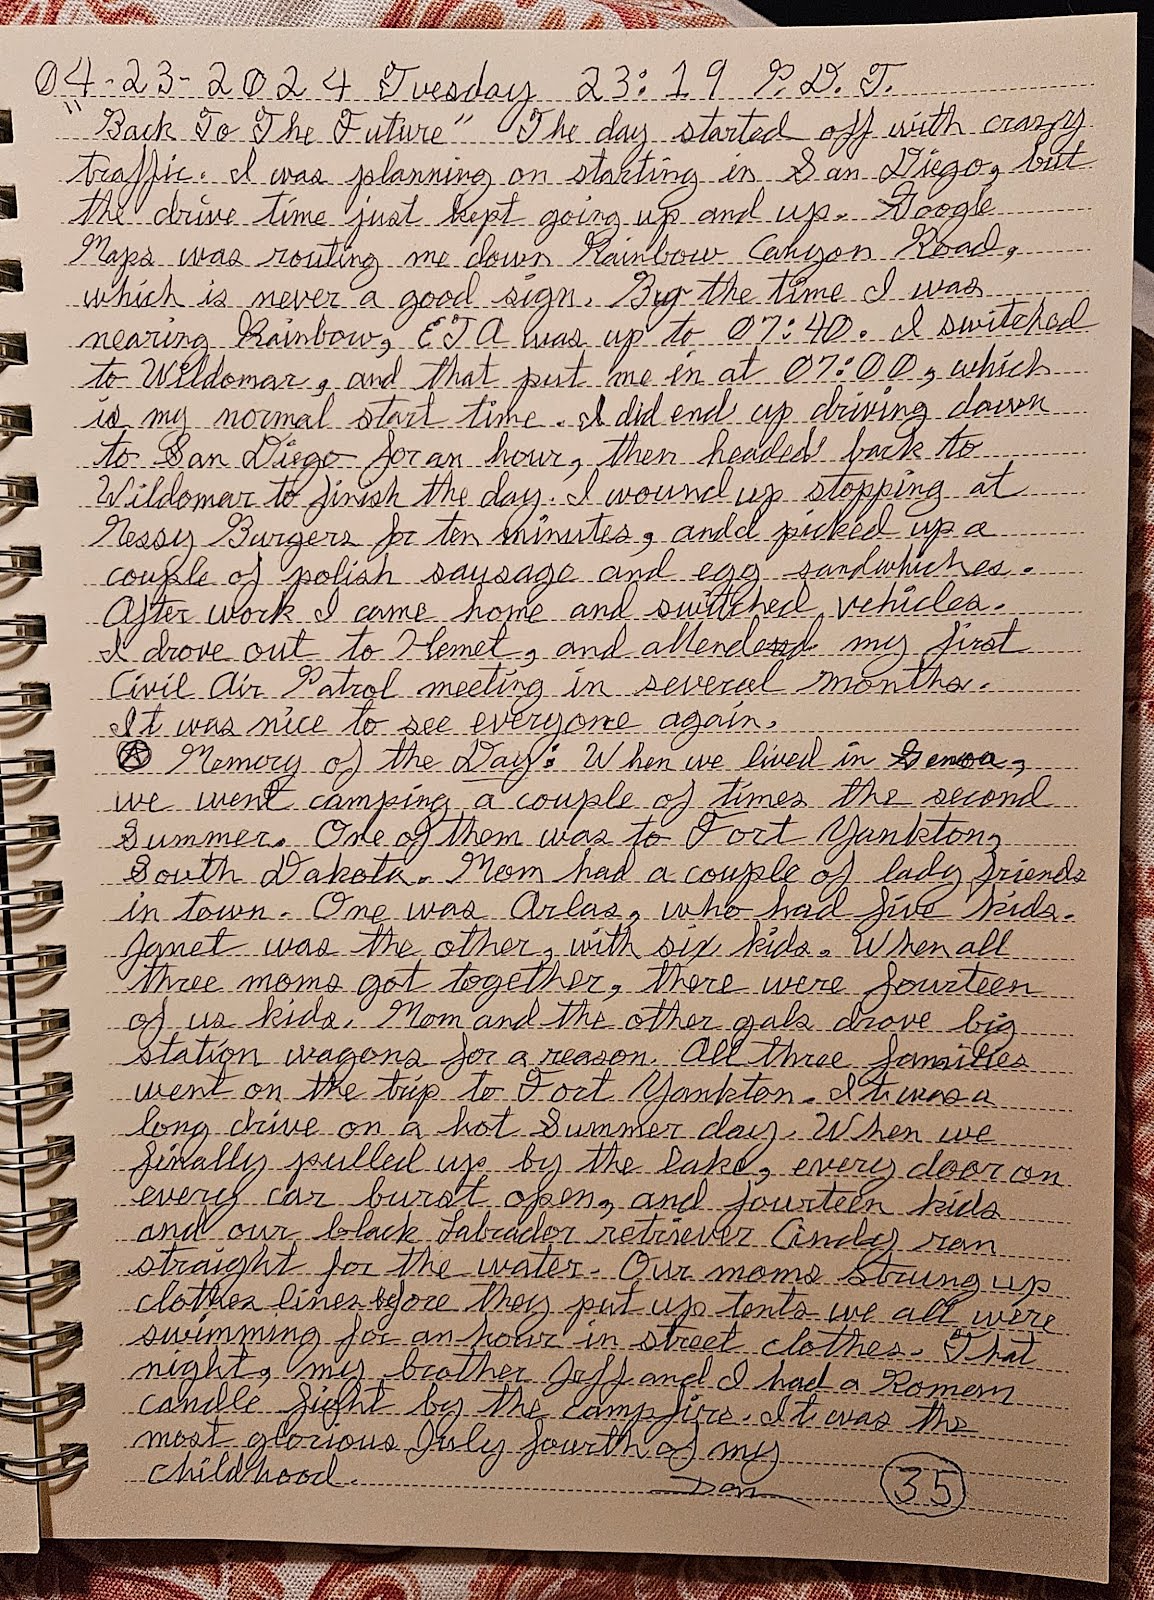 04-23-2024 Tuesday 23:19 P.D.T.
"Back To The Future" The day started off with crazy
traffic. I was planning on starting in San Diego, but
the drive time just kept going up and up. Google
Maps was routing me down Rainbow Canyon Road,
which is never a good sign. By the time I was
nearing Rainbow, ETA was up to 07:40. I switched
to Wildomar, and that put me in at 07:00, which
is my normal start time. I did end up driving down
to San Diego for an hour, then headed back to
Wildomar to finish the day. I wound up stopping at
Nessy Burgers for ten minutes, andd picked up a
couple of polish sausage and egg sandwhiches.
After work I came home and switched vehicles.
I drove out to Hemet, and attended my first
Civil Air Patrol meeting in several months.
It was nice to see everyone again.
Memory of the Day: When we lived in Genoa,
we went camping a couple of times the second
Summer. One of them was to Fort Yankton,
South Dakota. Mom had a couple of lady friends
in town. One was Arlas, who had five kids.
Janet was the other, with six kids. When all
three moms got together, there were fourteen
of us kids. Mom and the other gals drove big
station wagons for a reason. All three families
went on the trip to Fort Yankton. It was a
long drive on a hot Summer day. When we
finally pulled up by the lake, every door on
every car burst open, and fourteen kids
and our black Labrador retriever Cindy ran
straight for the water. Our moms strung up
clothes lines before they put up tents we all were
swimming for an hour in street clothes. That
night, my brother Jeff and I had a Roman
candle fight by the campfire. It was the
most glorious July fourth of my
childhood. Dan 35